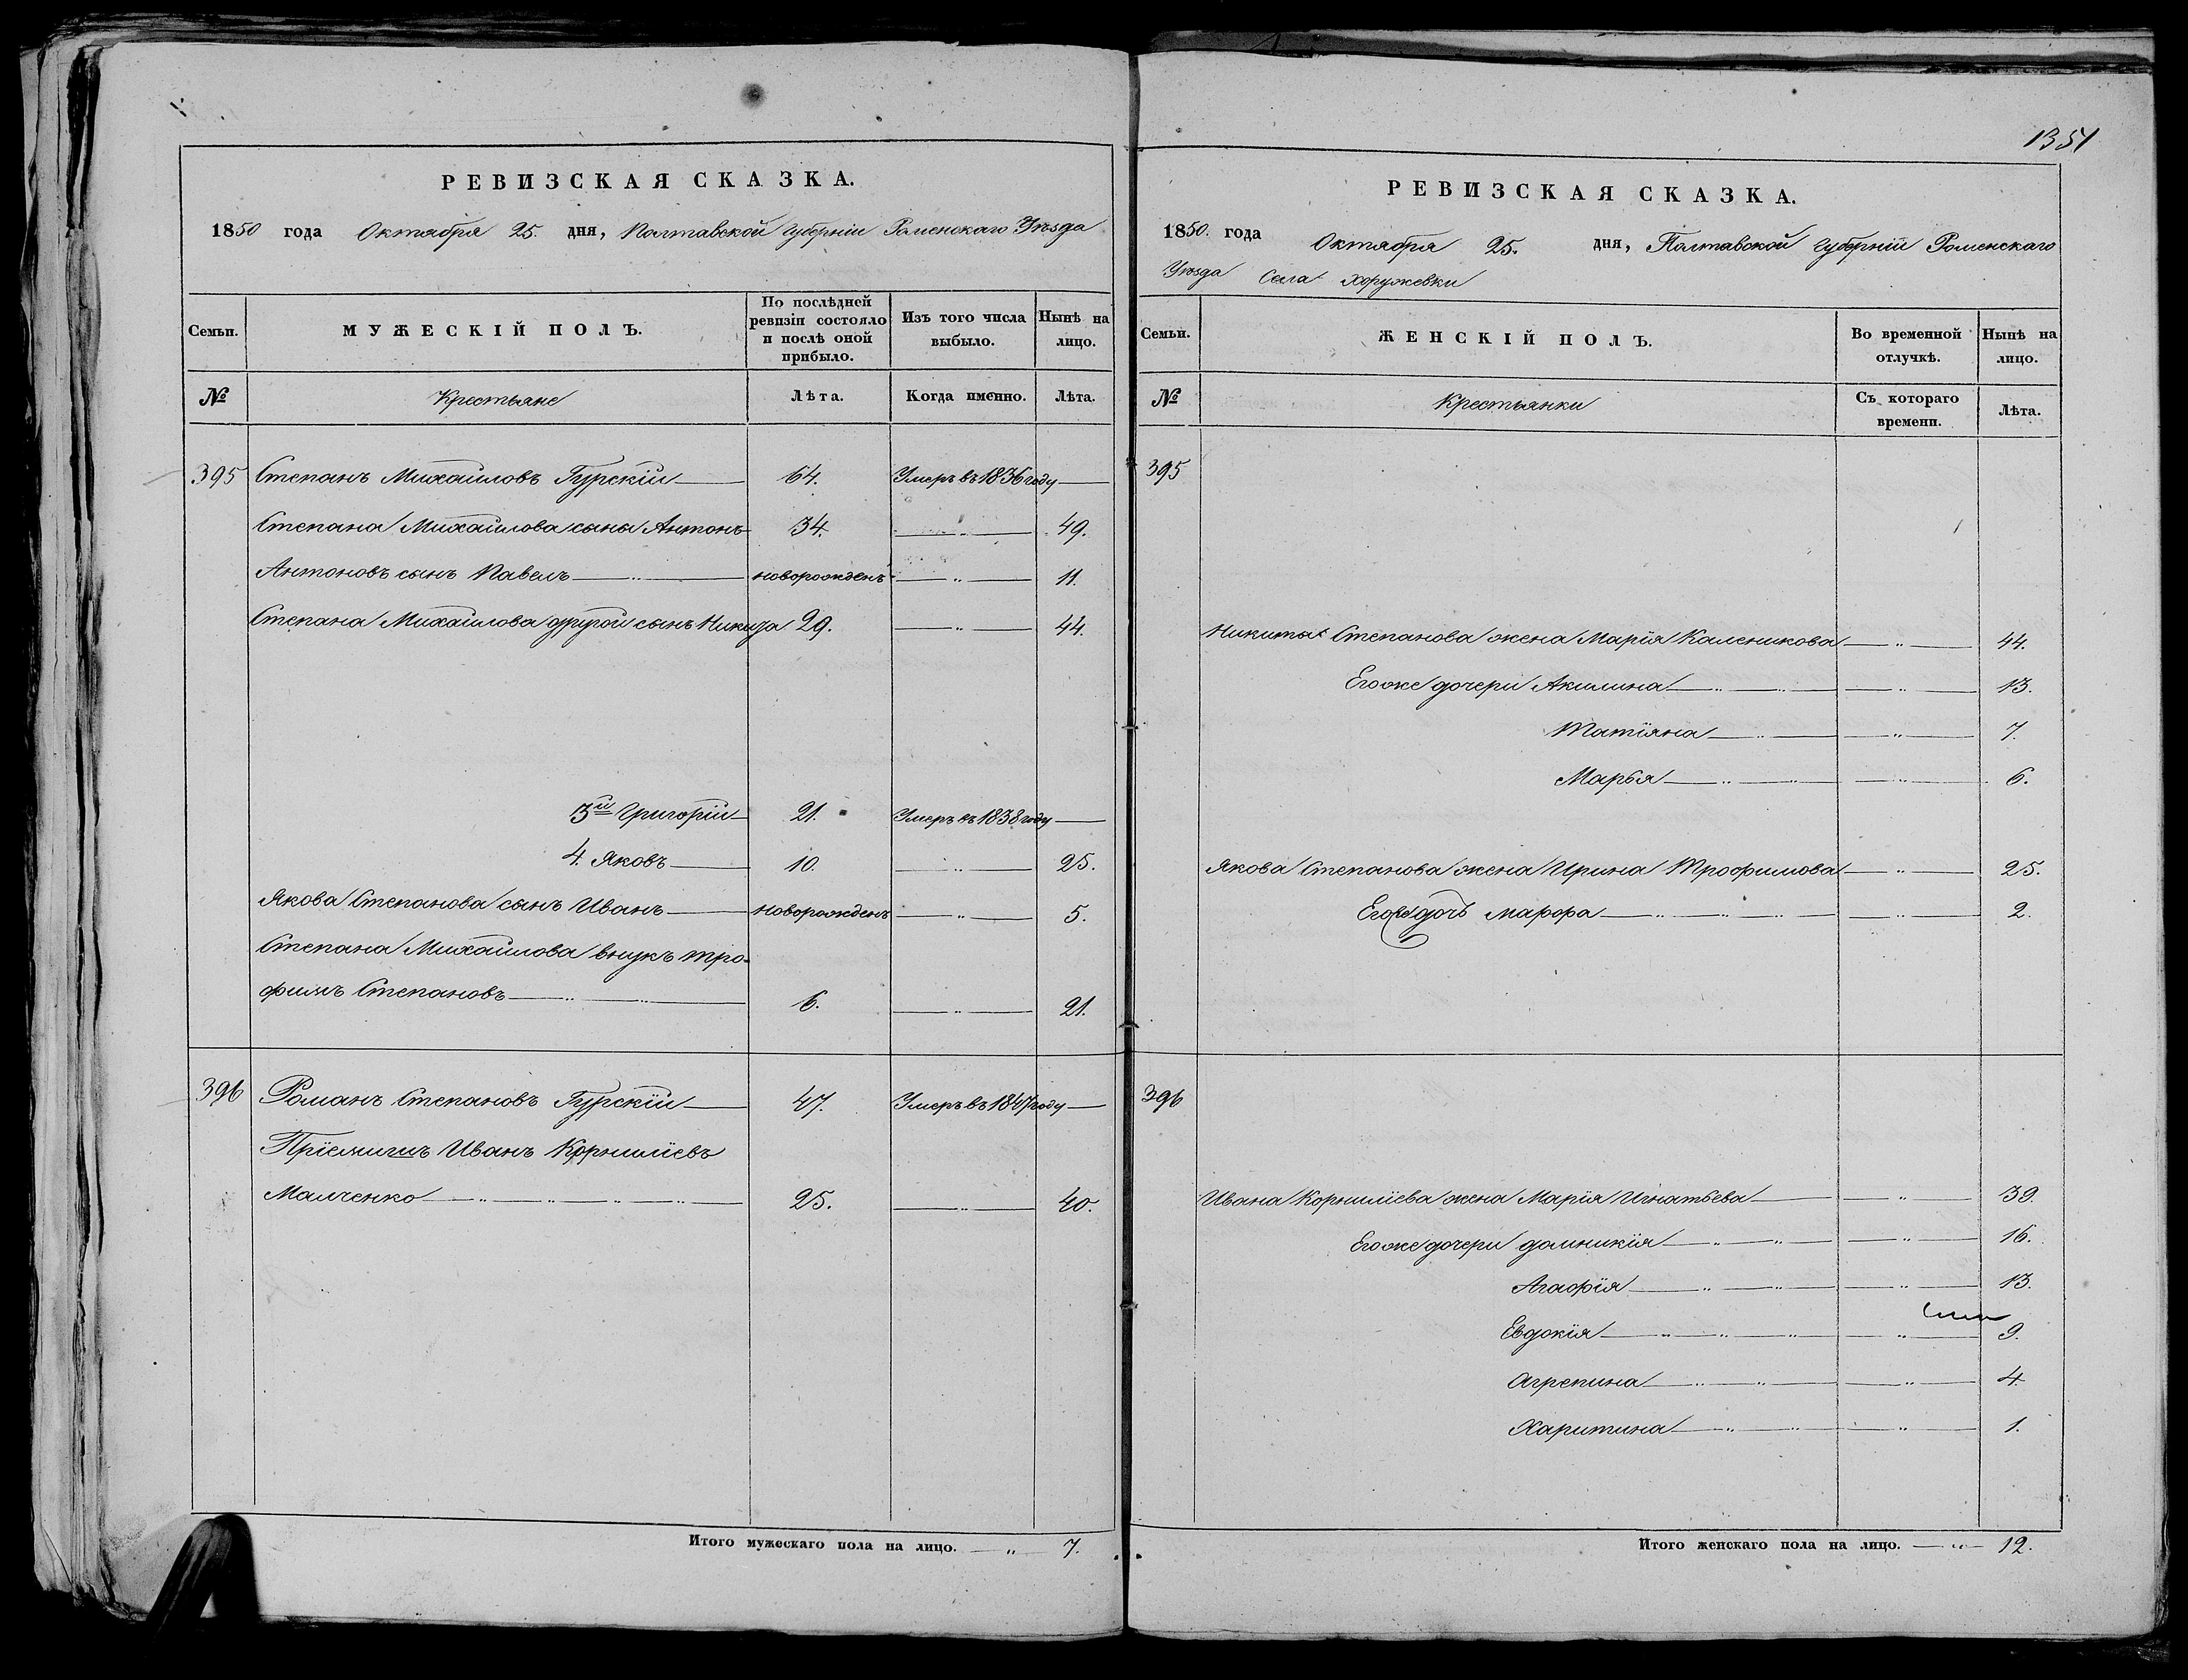 РЕВИЗСКАЯ СКАЗКА.
1850 года Октября 25. дня, Полтавской губерніи Роменскаго Уѣзда
Семьи. МУЖЕСКІЙ ПОЛЪ. По послѣдней ревизіи состояло и послѣ оной прибыло. Изъ того числа выбыло. Нынѣ на лицо.
№ Крестьяне Лѣта. Когда именно. Лѣта.
395 Степанъ Михайловъ Гурскій 64. Умеръ въ 1836 году
Степана Михайлова сыны Антонъ 34. 49.
Антоновъ сынъ Павелъ новорожденъ 11.
Степана Михайлова другой сынъ Никита 29. 44.
3й Григорій 21. Умеръ въ 1838 году
4. Яковъ 10. 25.
Якова Степанова сынъ Иванъ новорожденъ 5.
Степана Михайлова внукъ Тро-
фимъ Степановъ 6. 21.
396 Романъ Степановъ Гурскій 47. Умеръ въ 1847 году
Пріемышъ Иванъ Корниліевъ
Малченко 25. 40.
Итого мужескаго пола на лицо. 7.
1351
РЕВИЗСКАЯ СКАЗКА.
1850. года Октября 25. дня, Полтавской губерніи Роменскаго
Уѣзда Села Хоружевки
Семьи. ЖЕНСКІЙ ПОЛЪ. Во временной отлучкѣ. Нынѣ на лицо.
№ Крестьянки Съ котораго времени. Лѣта.
395
Никиты Степанова жена Марія Каленикова 44.
Его же дочери Акилина 13.
Татіяна 7.
Марья 6.
Якова Степанова жена Ирина Трофимова 25.
Его же дочь Марфа 2.
396
Ивана Корниліева жена Марія Игнатьева 39.
Его же дочери Домникія 16.
Агафія 13.
Евдокія 9.
Агрепина 4.
Харитина 1.
Итого женскаго пола на лицо. 12.